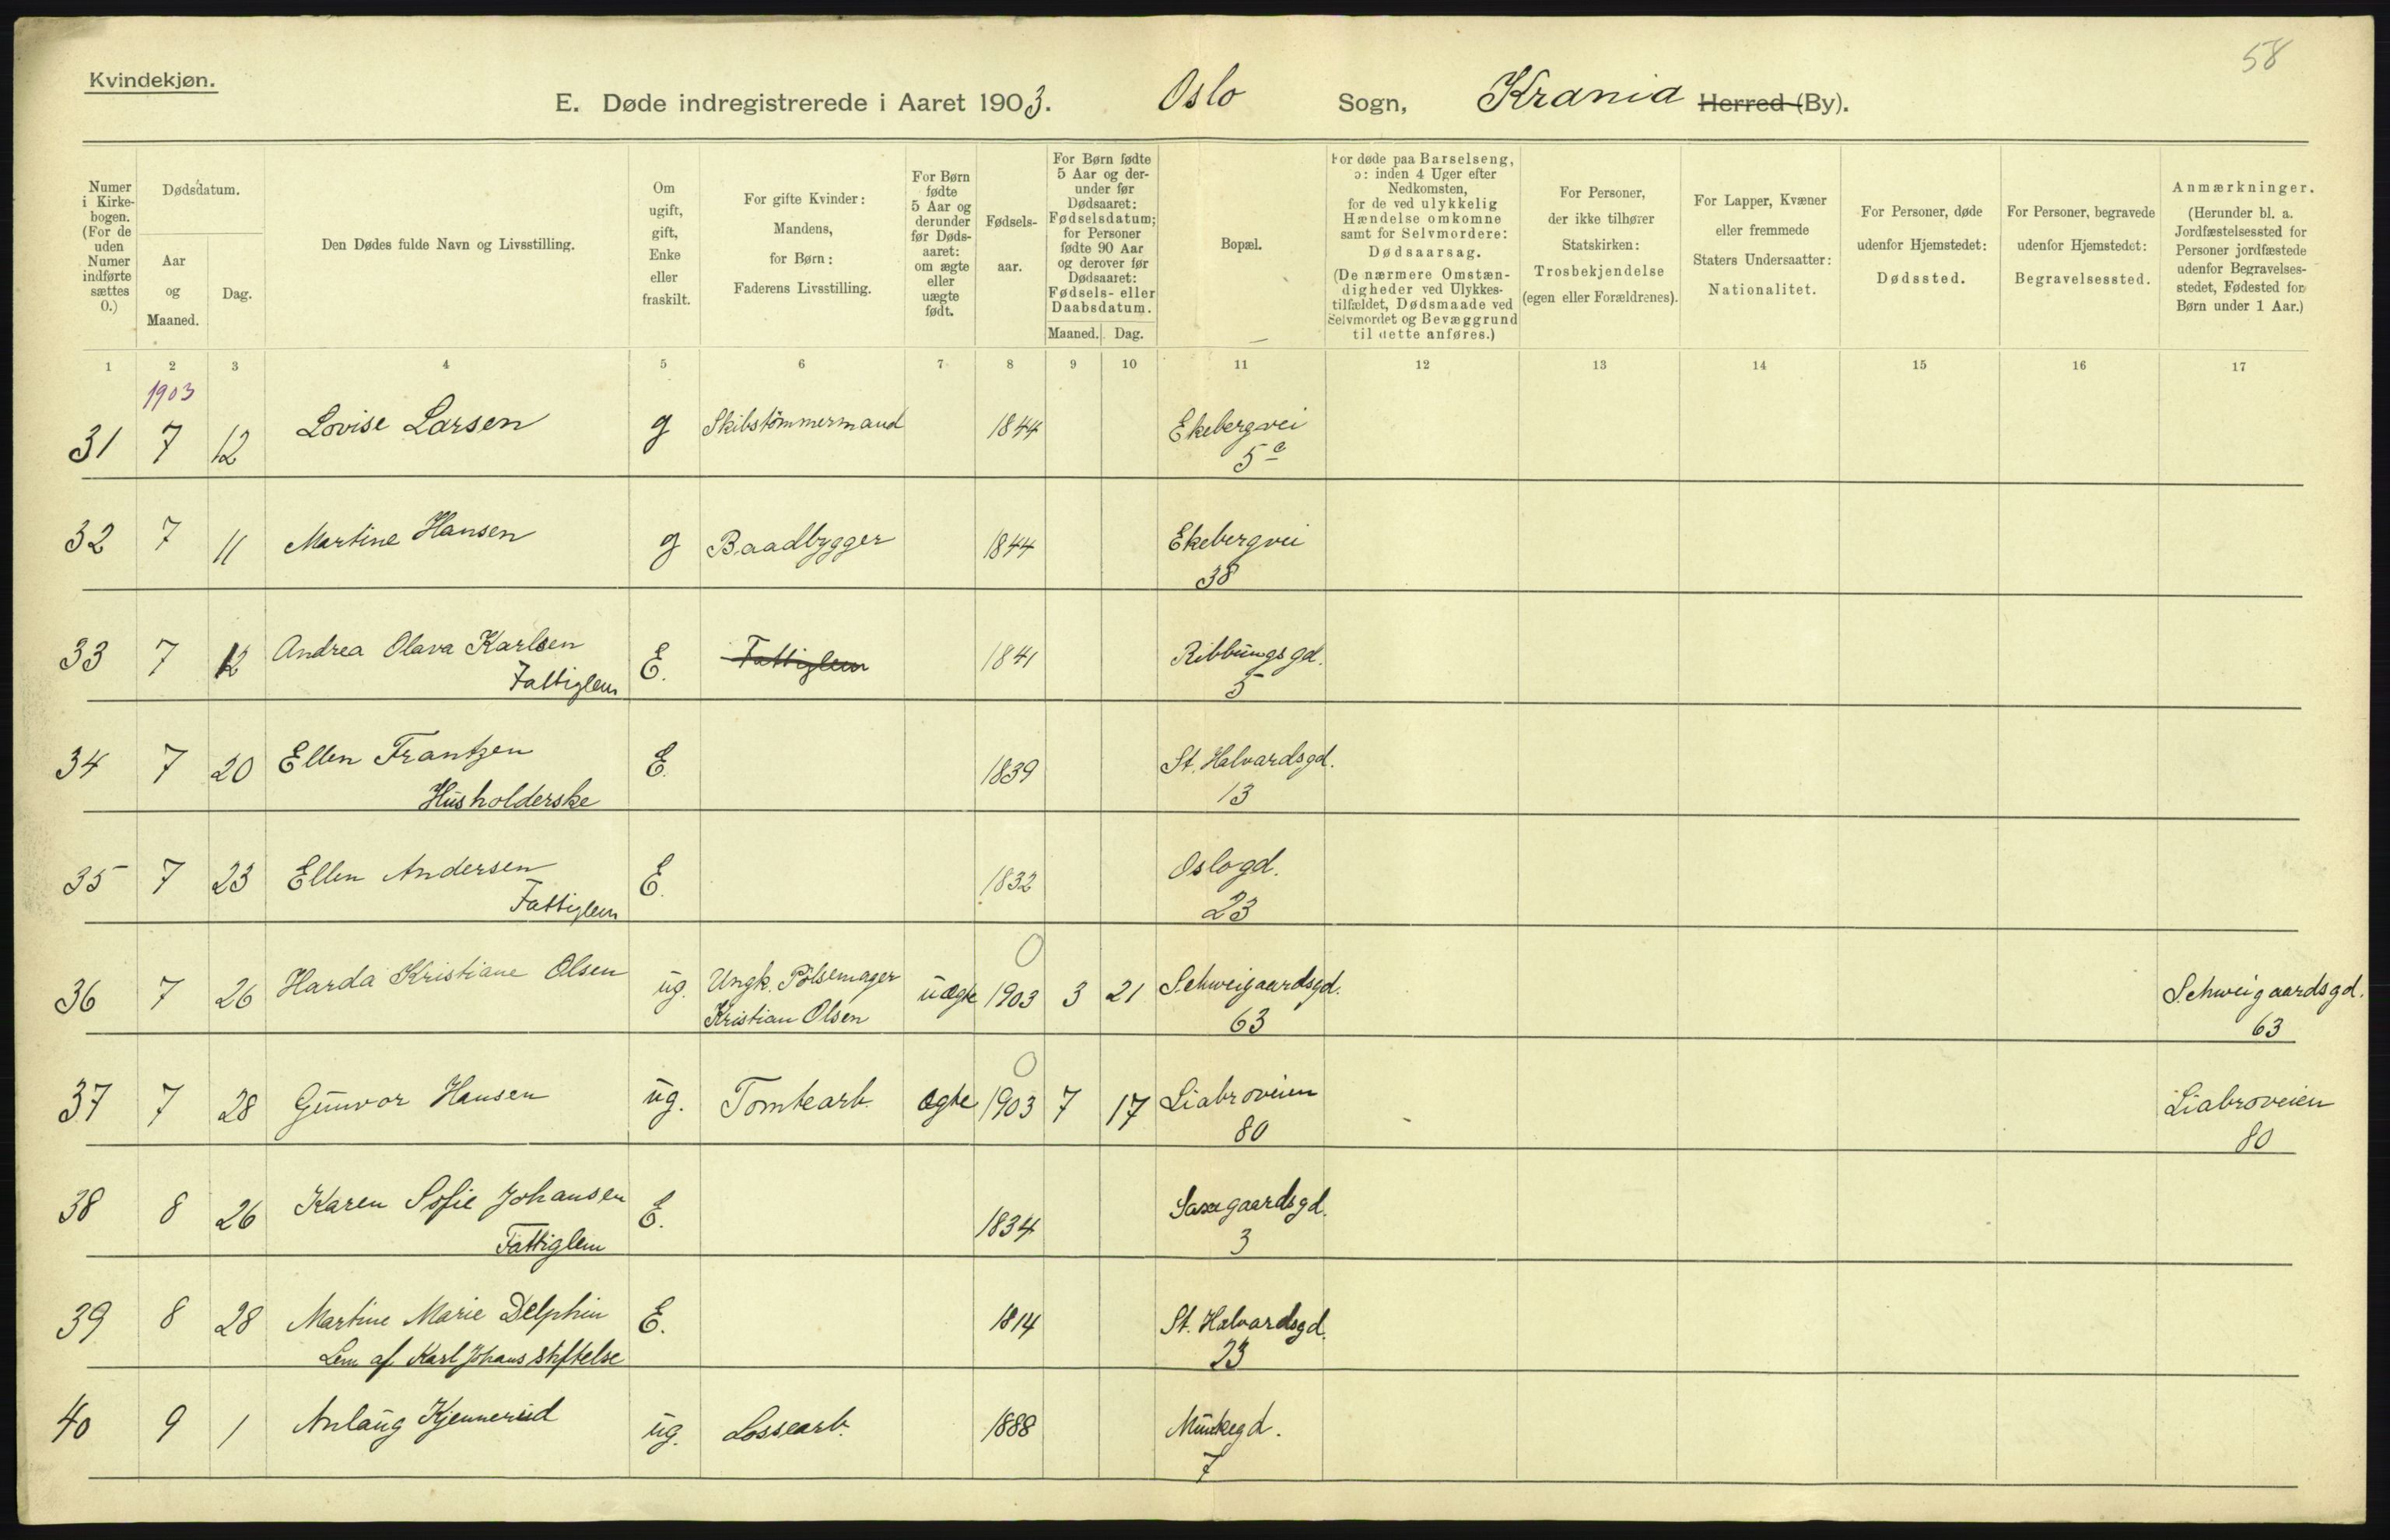 58
Kvindekjøn.
E. Døde indregistrerede i Aaret 1903. Oslo Sogn, Krania Herred (By).
Numer i Kirke-bogen. (For de uden Numer indførte sættes 0.)
Dødsdatum.
Aar og Maaned.
Dag.
Den Dødes fulde Navn og Livsstilling.
Om ugift, gift, Enke eller fraskilt.
For gifte Kvinder: Mandens, for Børn: Faderens Livsstilling.
For Børn fødte 5 Aar og derunder før Døds-aaret: om ægte eller uægte født.
Fødsels-aar.
For Børn fødte 5 Aar og der-under før Dødsaaret: Fødselsdatum; for Personer fødte 90 Aar og derover før Dødsaaret: Fødsels- eller Daabsdatum.
Maaned. Dag.
Bopæl.
For døde paa Barselseng, ɔ: inden 4 Uger efter Nedkomsten, for de ved ulykkelig Hændelse omkomne samt for Selvmordere: Dødsaarsag. (De nærmere Omstæn-digheder ved Ulykkes-tilfældet, Dødsmaade ved Selvmordet og Bevæggrund til dette anføres.)
For Personer, der ikke tilhører Statskirken: Trosbekjendelse (egen eller Forældrenes).
For Lapper, Kvæner eller fremmede Staters Undersaatter: Nationalitet.
For Personer, døde udenfor Hjemstedet: Dødssted.
For Personer, begravede udenfor Hjemstedet: Begravelsessted.
Anmærkninger. (Herunder bl. a. Jordfæstelsessted for Personer jordfæstede udenfor Begravelses-stedet, Fødested for Børn under 1 Aar.)
1 2 3 4 5 6 7 8 9 10 11 12 13 14 15 16 17
1903
31 7 12 Lovise Larsen g Skibstömmermand 1844 Ekebergvei
5 c
32 7 11 Martine Hansen g Baadbygger 1844 Ekebergvei
38
33 7 12 Andrea Olava Karlsen E. Fattiglem 1841 Ribbungsgd.
Fattiglem 5
34 7 20 Ellen Frantzen E. 1839 St. Halvardsgd.
Husholderske 13
35 7 23 Ellen Andersen E. 1832 Oslogd.
Fattiglem 23
0
36 7 26 Harda Kristiane Olsen ug. Ungk. Pölsemager uægte 1903 3 21 Schweigaardsgd. Schweigaardsgd.
Kristian Olsen 63 63
0
37 7 28 Gunvor Hansen ug. Tomtearb. ægte 1903 7 17 Liabroveien Liabroveien
80 80
38 8 26 Karen Sofie Johansen E. 1834 Saxegaardsgd.
Fattiglem 3
39 8 28 Martine Marie Delphin E. 1814 St. Halvardsgd.
Lem af Karl Johans Stiftelse 23
40 9 1 Anlaug Kjennerud ug. Lossearb. 1888 Munkegd.
7